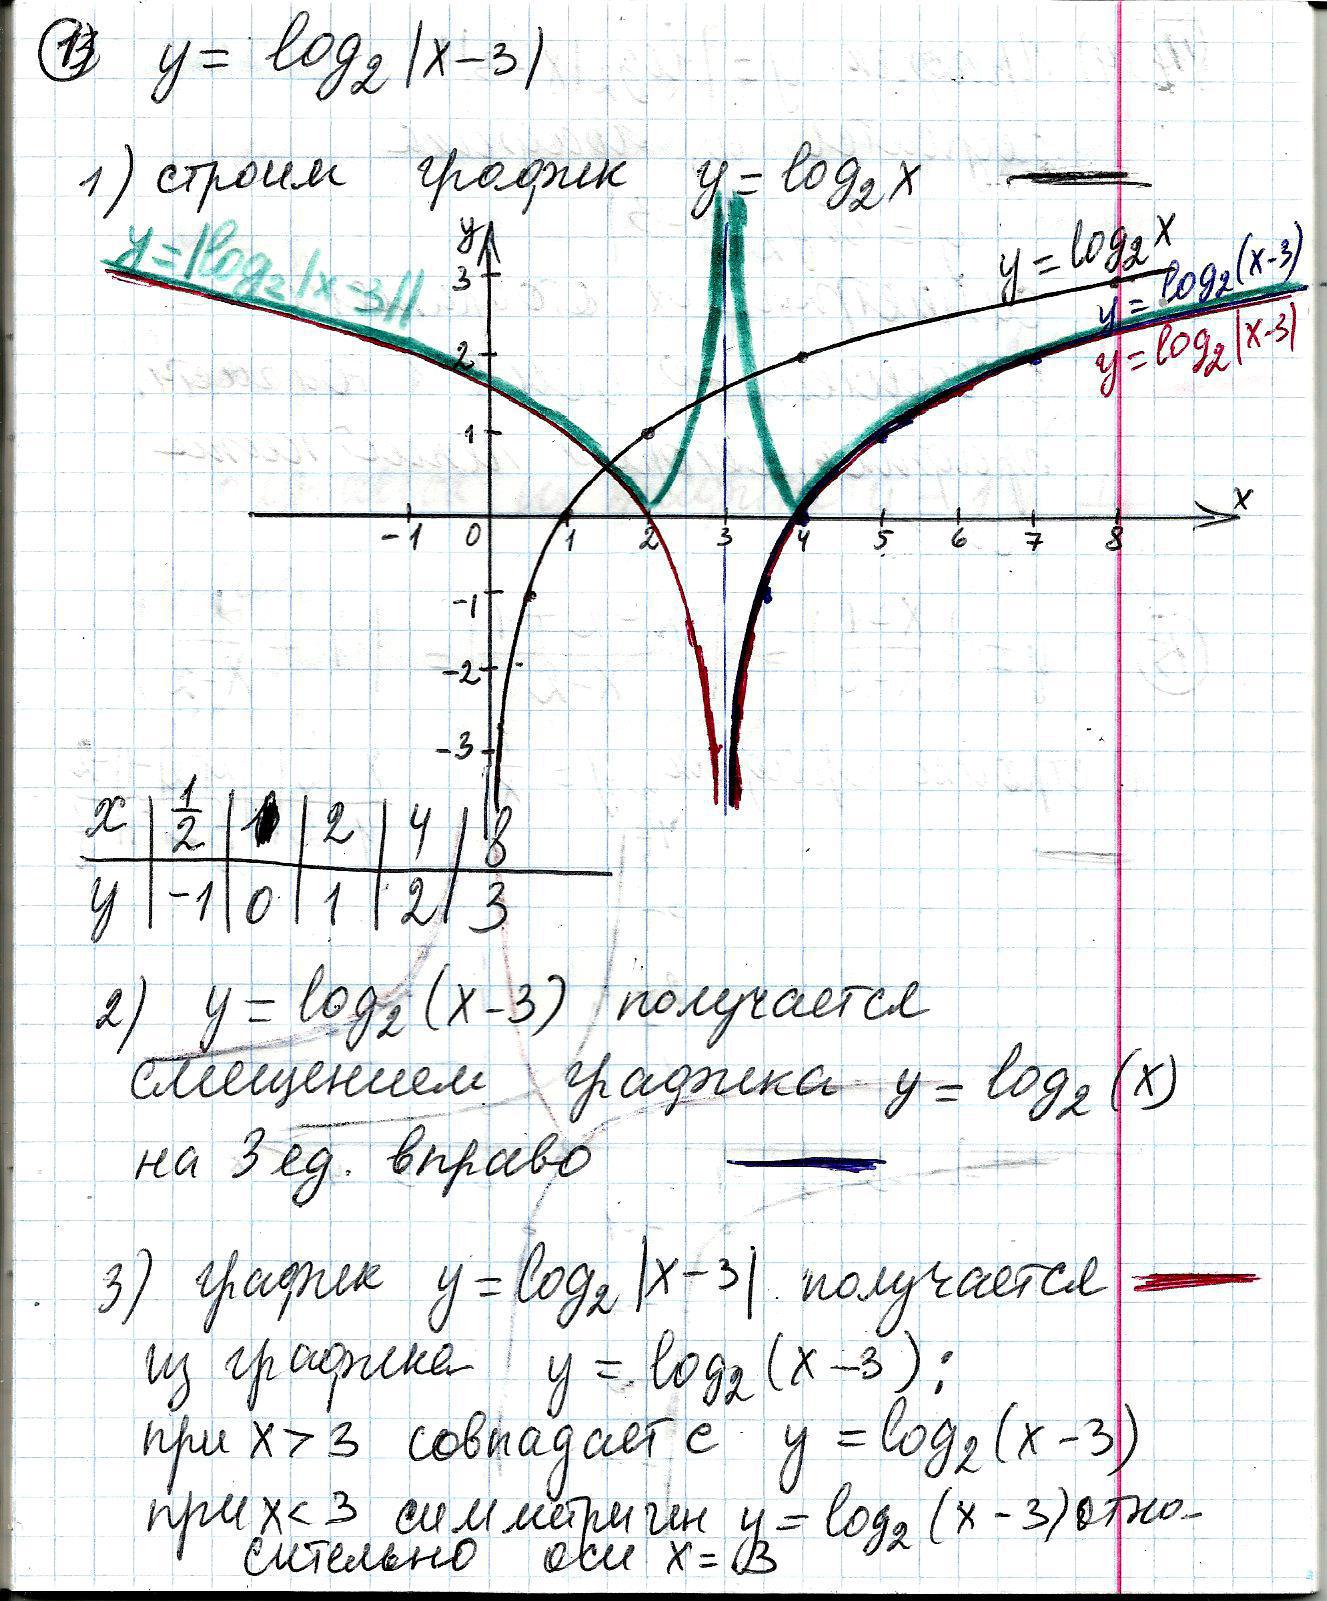 13 y = log₂|x-3|
1) строим график y = log₂x
y = log₂x
y = log₂(x-3)
y = |log₂|x-3||
y = log₂|x-3|
y
3
2
1
-1 0 1 2 3 4 5 6 7 8 x
-1
-2
-3
x | 1/2 | 1 | 2 | 4 | 8
y | -1 | 0 | 1 | 2 | 3
2) y = log₂(x-3) получается
смещением графика y = log₂(x)
на 3 ед. вправо
3) график y = log₂|x-3| получается
из графика y = log₂(x-3):
при x > 3 совпадает с y = log₂(x-3)
при x < 3 симметричен y = log₂(x-3) отно-
сительно оси x = 3